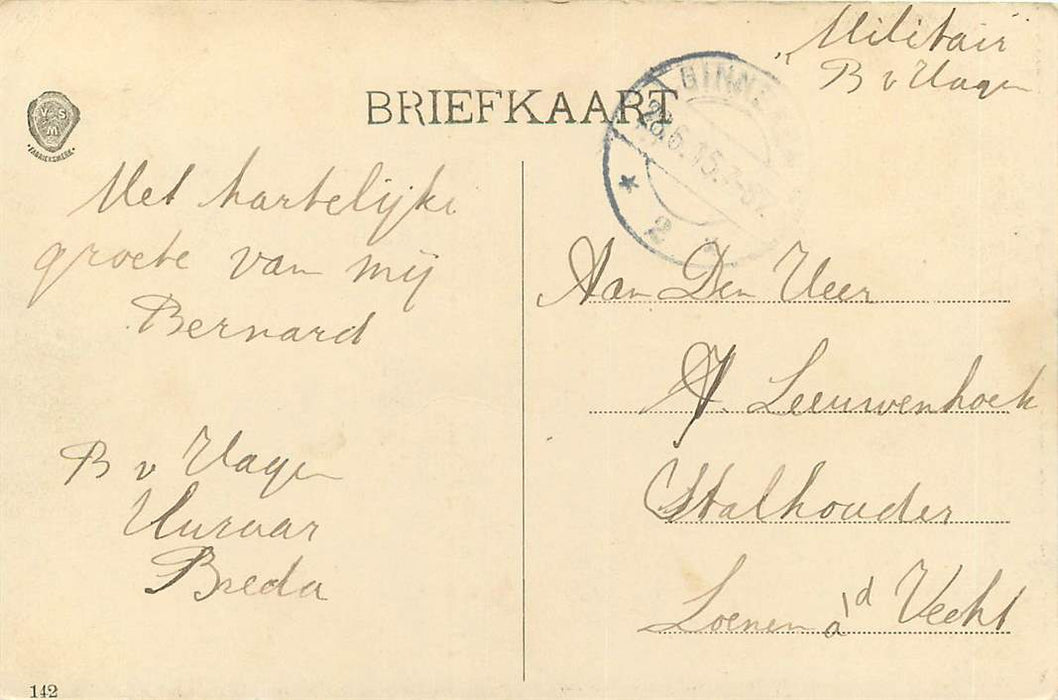 „Militair
B v Hagen
BRIEFKAART
V S M
FABRIEKSMERK
BINN
28.6.15.7-8
2
Met hartelijke
groete van mij
Bernard
B v Hagen
Huzaar
Breda
Aan Den Heer
A. Leeuwenhoek
Stalhouder
Loenen a'd Vecht
142